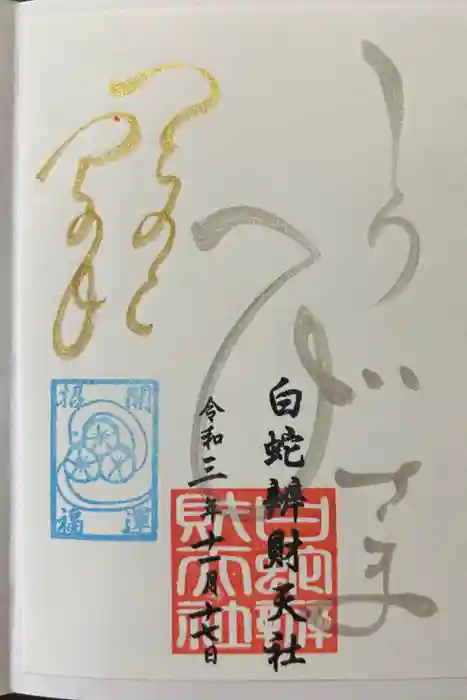 しろへびさま
白蛇辨財天社
令和三年十一月十七日
白蛇辨
財天社
開運
招福